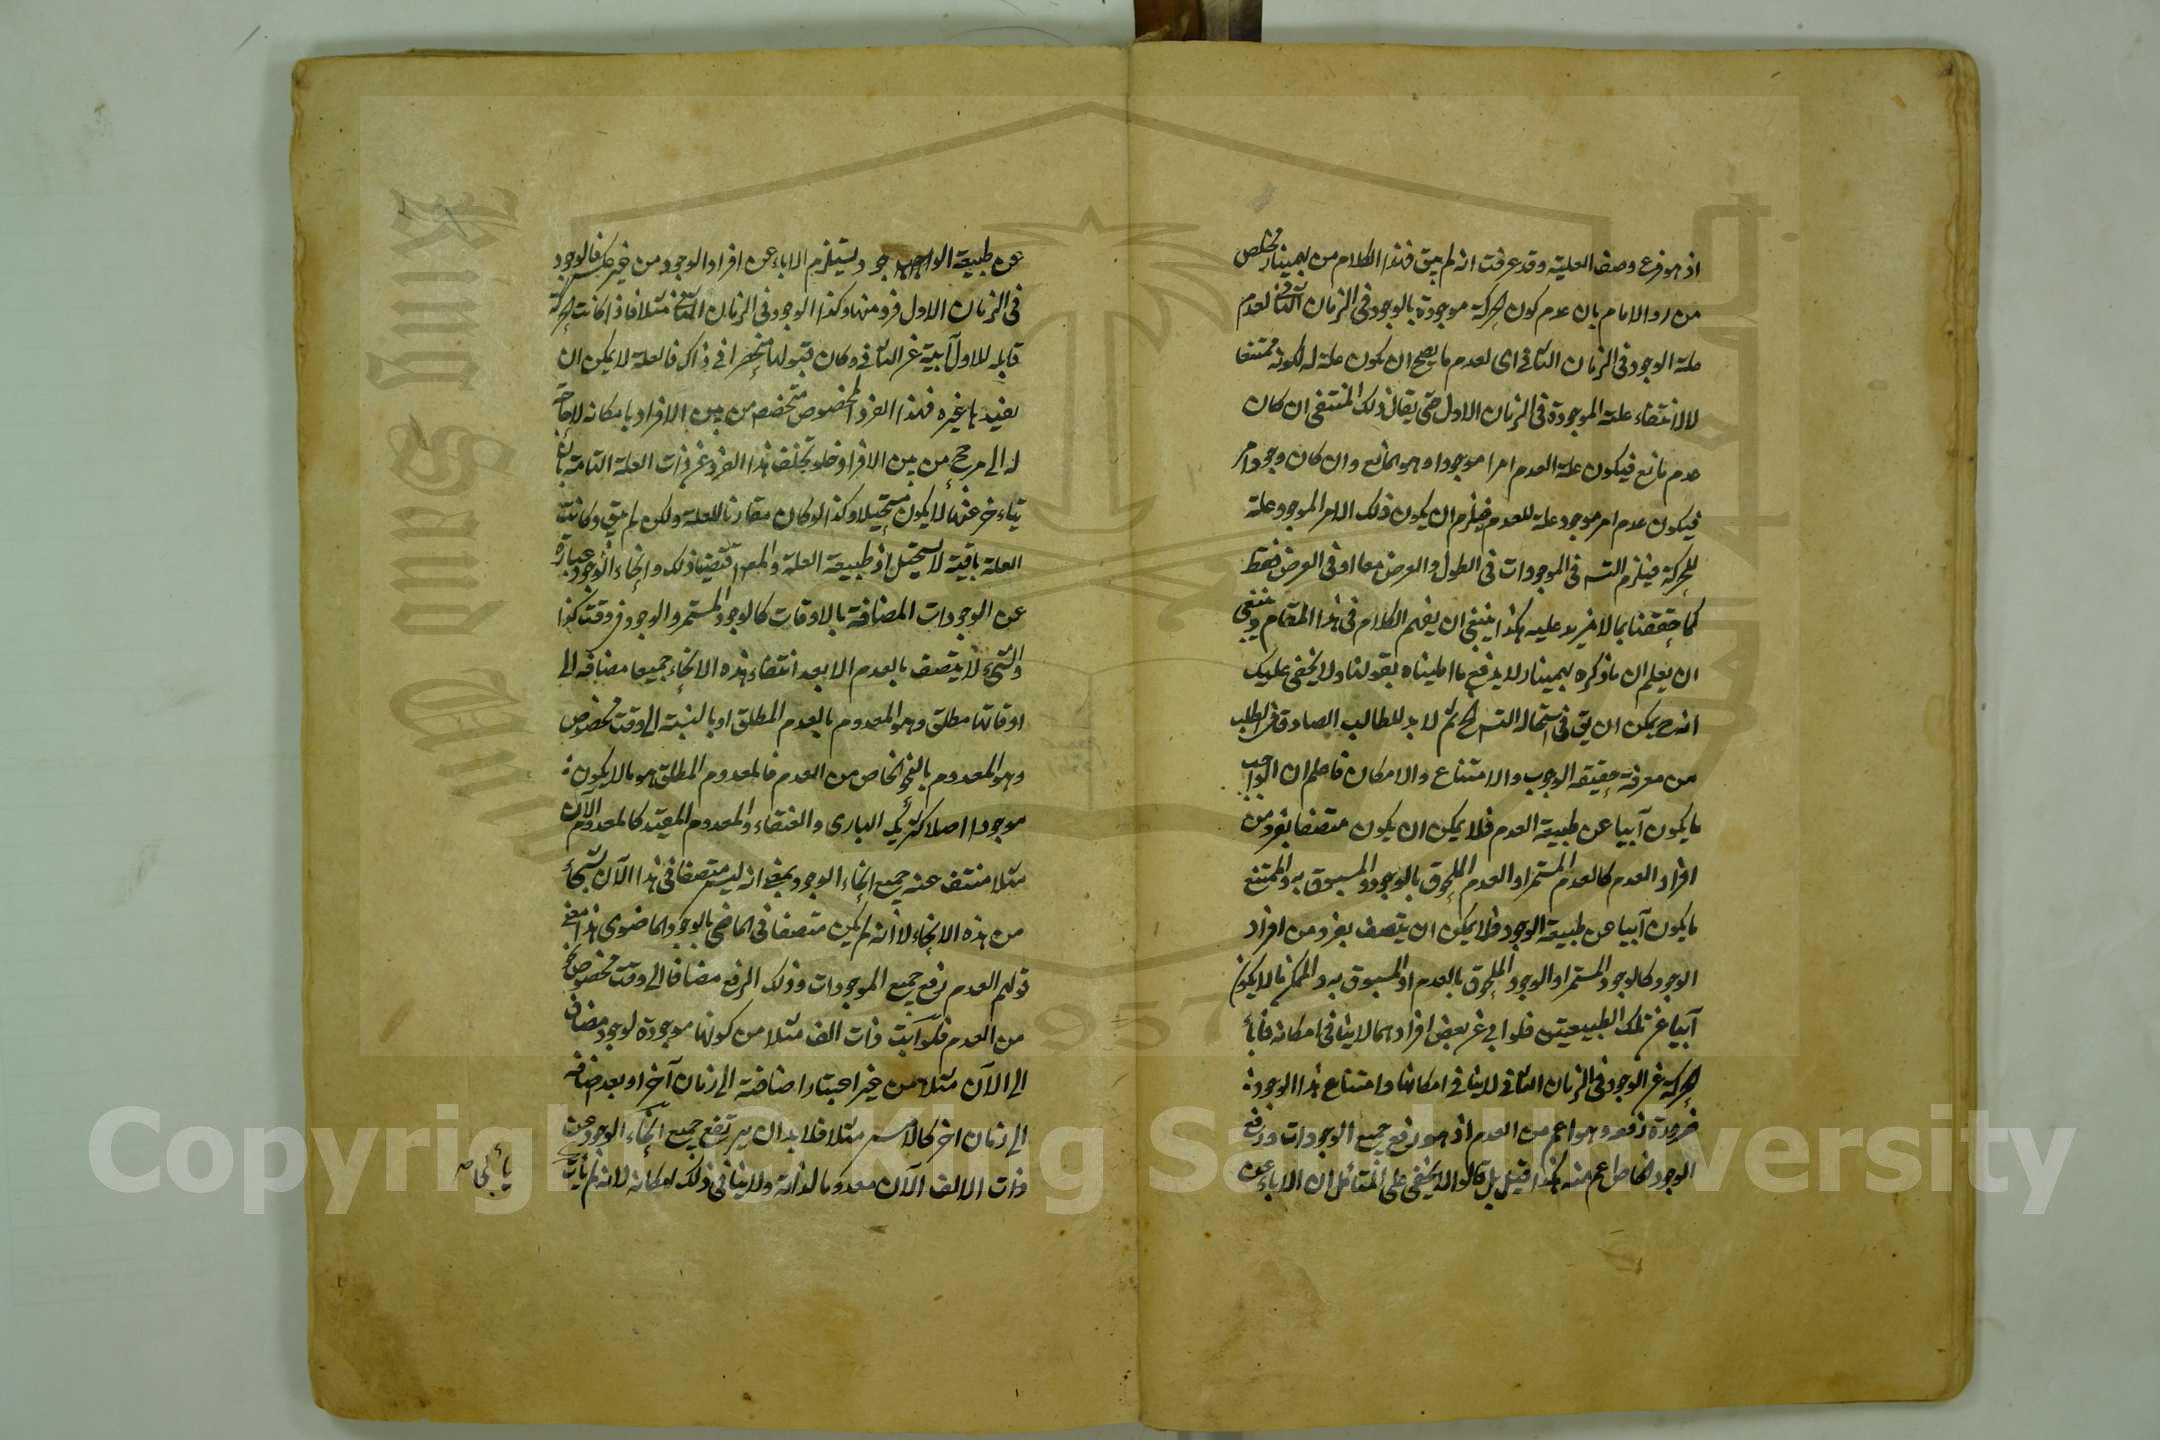 اذ هو فرع وصف العلية وقد عرفت انه لم يبق فهذا الكلام من بهمنيار مخلص
من رد الامام بان عدم كون الحركة موجودة بالوجود فى الزمان الثانى لعدم
علة الوجود فى الزمان الثانى اى لعدم ما يصح ان يكون علة له لكونه ممتنعا
لا لانتفاء علته الموجودة فى الزمان الاول حتى يقال ذلك المنتفى ان كان
عدم مانع فيكون علة العدم امرا موجودا وهو المانع وان كان وجود امر
فيكون عدم امر موجود علة للعدم فيلزم ان يكون ذلك الامر الموجود علة
للحركة فيلزم التسـ فى الموجودات فى الطول والعرض معا او فى العرض فقط
كما حققنا بما لا مزيد عليه هكذا ينبغى ان يفهم الكلام فى هذا المقام وينبغى
ان يعلم ان ما ذكره بهمنيار لا يدفع ما اطيناه بقولنا ولا يخفى عليك
انه ح يمكن ان يق فى استحالة التسـ الخ ثم لا بد للطالب الصادق فى الطلب
من معرفة حقيقة الوجوب والامتناع والامكان فاعلم ان الواجب
ما يكون آبيا عن طبيعة العدم فلا يمكن ان يكون متصفا بفرد من
افراد العدم كالعدم المستمر او العدم الملحوق بالوجود والمسبوق به والممتنع
ما يكون آبيا عن طبيعة الوجود فلا يمكن ان يتصف بفرد من افراد
الوجود كالوجود المستمر او الوجود الملحوق بالعدم او المسبوق به والممكن ما لا يكون
آبيا عن تلك الطبيعتين فلو ابى عن بعض افرادهما لا ينافى امكانه فاباء
الحركة عن الوجود فى الزمان الثانى لا ينافى امكانها وامتناع هذا الوجود
ضرورة رفعه وهو اعم من العدم اذ هو رفع جميع الوجودات ورفع
الوجود الخاص اعم منه هكذا قيل بل قالوا لا يخفى على المتامل ان الاباء عن
عن طبيعة الوجود ويستلزم الاباء عن افراد الوجود من غير عكس فالوجود
فى الزمان الاول فرد منها وكذا الوجود فى الزمان الثانى مثلا فاذا كانت الحركة
قابله للاول آبية عن الثانى وكان قبولها منحصرا فى ذاك فالعلة لا يمكن ان
يفيدها غيره فهذا الفرد المخصوص متخصص من بين الافراد بامكانه لا حاجة
له الى مرجح من بين الافراد فلو تخلف هذا الفرد عن ذات العلة التامة بان
يتاخر عنها لا يكون مستحيلا وكذا لو كان مقارنا للعلة ولكن لم يبق وكانت
العلة باقية لا يستحيل اذ طبيعة العلة والمعـ تقتضيا ذلك وانحاء الوجود عبارة
عن الوجودات المضافة بالاوقات كالوجود المستمر والوجود فى وقت كذا
والشئ لا يتصف بالعدم الا بعد انتفاء هذه الانحاء جميعا مضافه الى
اوقاتها مطلق وهو المعدوم بالعدم المطلق او بالنسبة الى وقت مخصوص
وهو المعدوم بالنحو الخاص من العدم فالمعدوم المطلق هو ما لا يكون
موجودا اصلا كشريك البارى والعنقاء والمعدوم المقيد كالمعدوم الآن
مثلا منتف عنه جميع انحاء الوجود بمعنى انه ليس متصفا فى هذا الآن بشئ
من هذه الانحاء لا انه لم يكن متصفا فى الماضى بالوجود الماضوى هذا معنى
قولهم العدم رفع جميع الموجودات وذلك الرفع مضافا الى وقت مخصوص نحو
من العدم فلو ابت ذات الف مثلا من كونها موجودة لوجود مضاف
الى الآن مثلا من غير اعتبار اضافة الى زمان آخر او بعد اضافه
الى زمان اخر كالامس مثلا فلا بد ان يرتفع جميع انحاء الوجود عن
ذات الالف الآن معدوما لذاته ولا ينافى ذلك امكانه لانه لم يأب